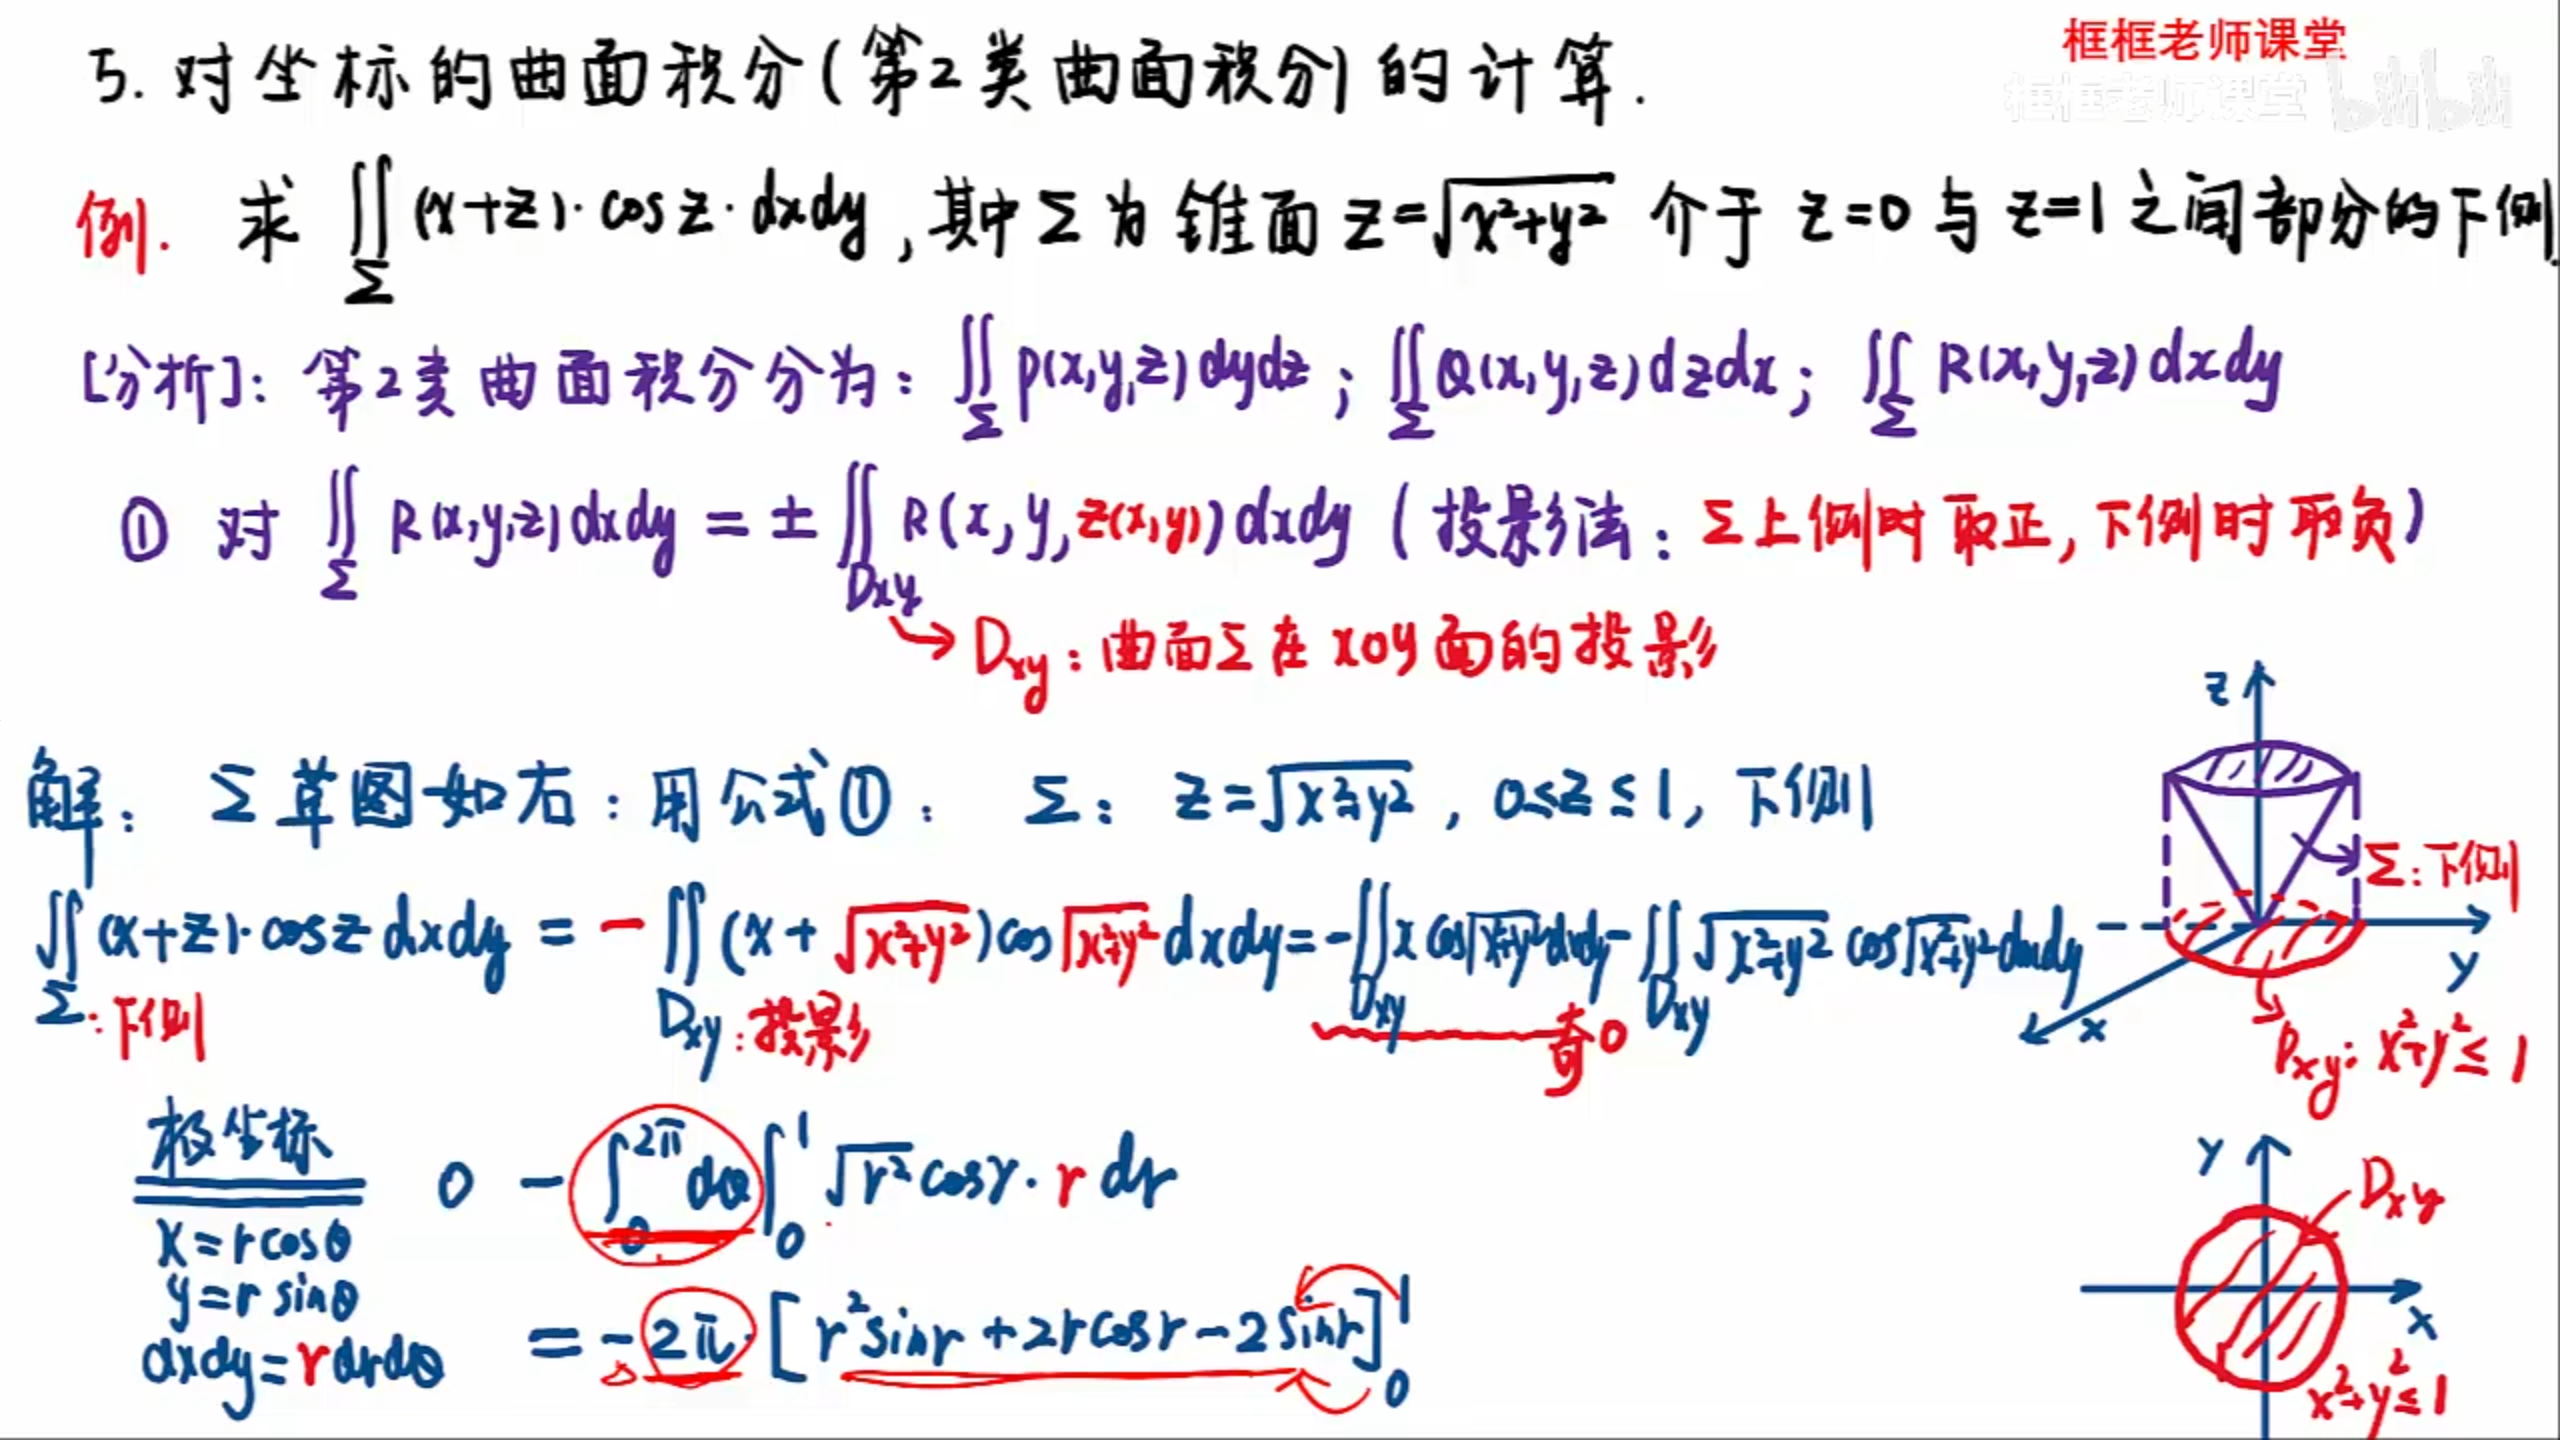 框框老师课堂
框框老师课堂 bilibili
5. 对坐标的曲面积分(第2类曲面积分)的计算.
例. 求 ∬_Σ (x+z)·cosz·dxdy, 其中Σ为锥面 z=√(x²+y²) 介于 z=0 与 z=1 之间部分的下侧.
[分析]: 第2类曲面积分分为: ∬_Σ P(x,y,z)dydz; ∬_Σ Q(x,y,z)dzdx; ∬_Σ R(x,y,z)dxdy
① 对 ∬_Σ R(x,y,z)dxdy = ± ∬_Dxy R(x,y,z(x,y))dxdy (投影法: Σ上侧时取正, 下侧时取负)
→ Dxy: 曲面Σ在xoy面的投影
解: Σ草图如右: 用公式①: Σ: z=√(x²+y²), 0≤z≤1, 下侧
∬_Σ (x+z)·cosz dxdy = - ∬_Dxy (x+√(x²+y²))cos√(x²+y²) dxdy = -∬_Dxy x cos√(x²+y²) dxdy - ∬_Dxy √(x²+y²) cos√(x²+y²) dxdy
Σ: 下侧
Dxy: 投影
奇 0
极坐标
x=rcosθ
y=r sinθ
dxdy=rdrdθ
0 - ∫₀^2π dθ ∫₀¹ √r² cosr·r dr
= -2π·[r²sinr+2rcosr-2sinr]₀¹
z
Σ: 下侧
y
x
Dxy: x²+y²≤1
y
Dxy
x
x²+y²≤1